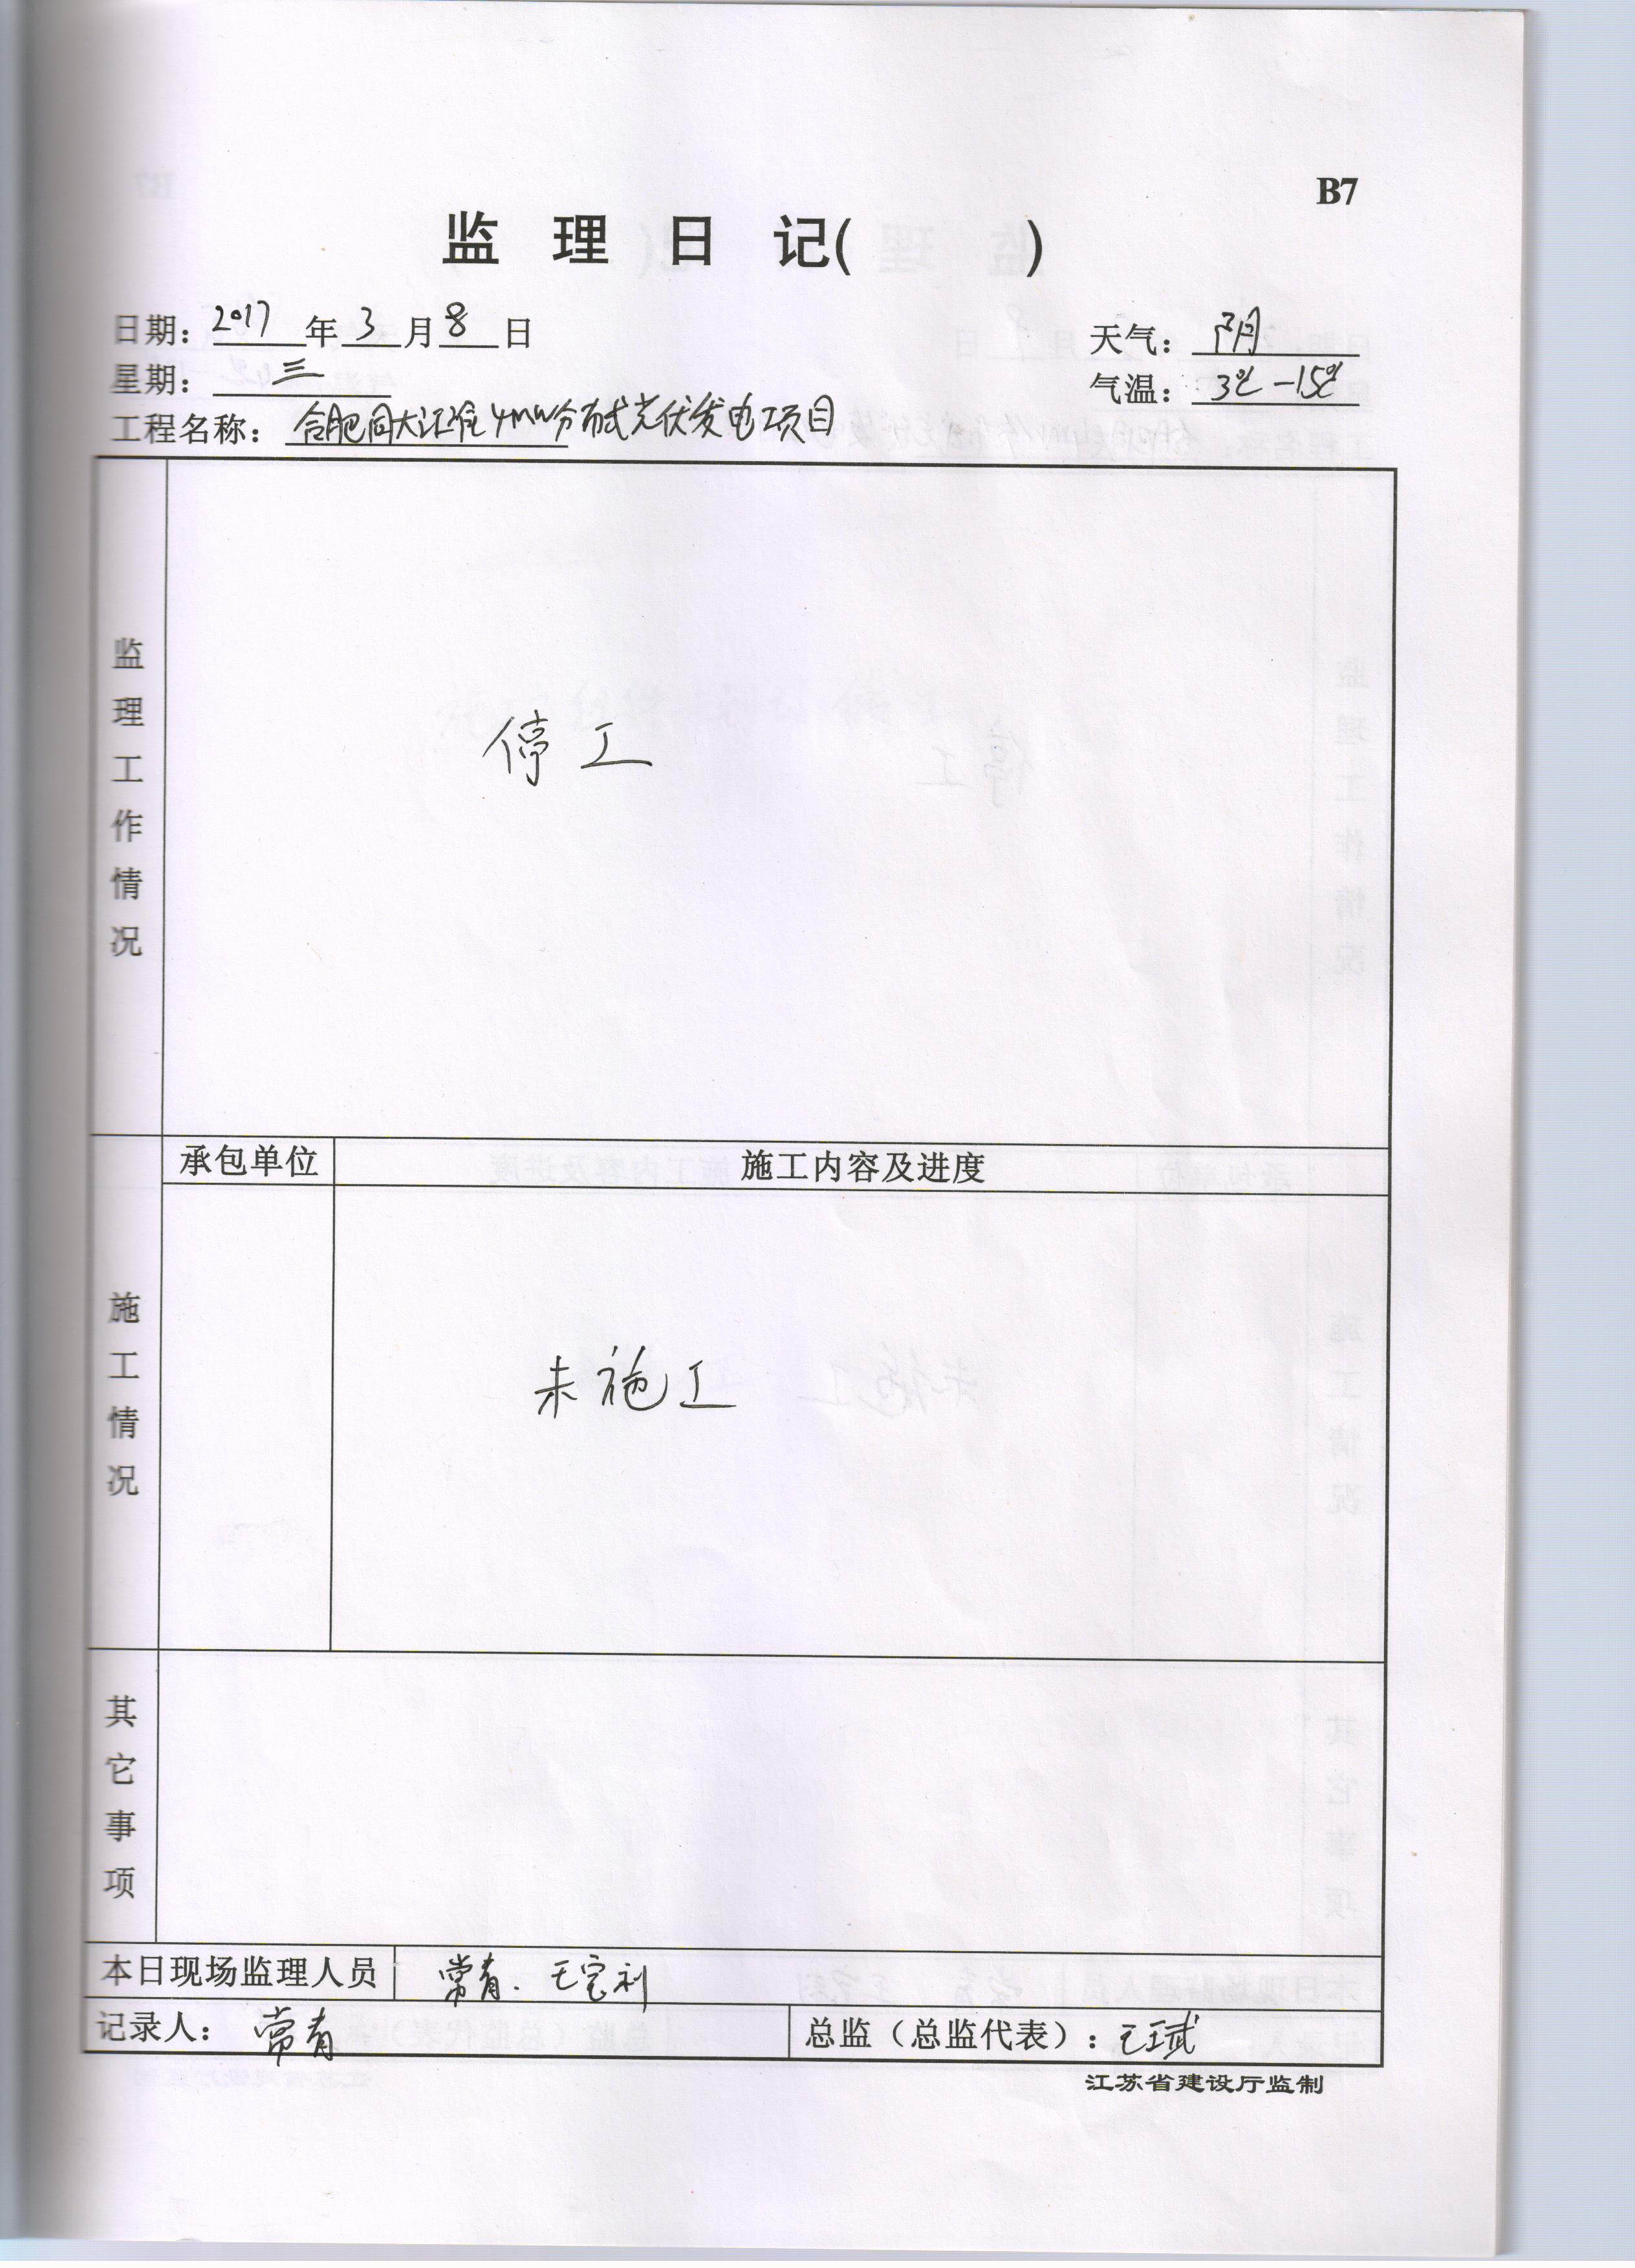 B7
监 理 日 记( )
日期: 2017 年 3 月 8 日
天气: 阴
星期: 三
气温: 3℃-15℃
工程名称: 合肥同大江淮4MW分布式光伏发电项目
监理工作情况
停工
承包单位
施工内容及进度
施工情况
未施工
其它事项
本日现场监理人员 常青.王宝利
记录人: 常青
总监（总监代表）: 王斌
江苏省建设厅监制